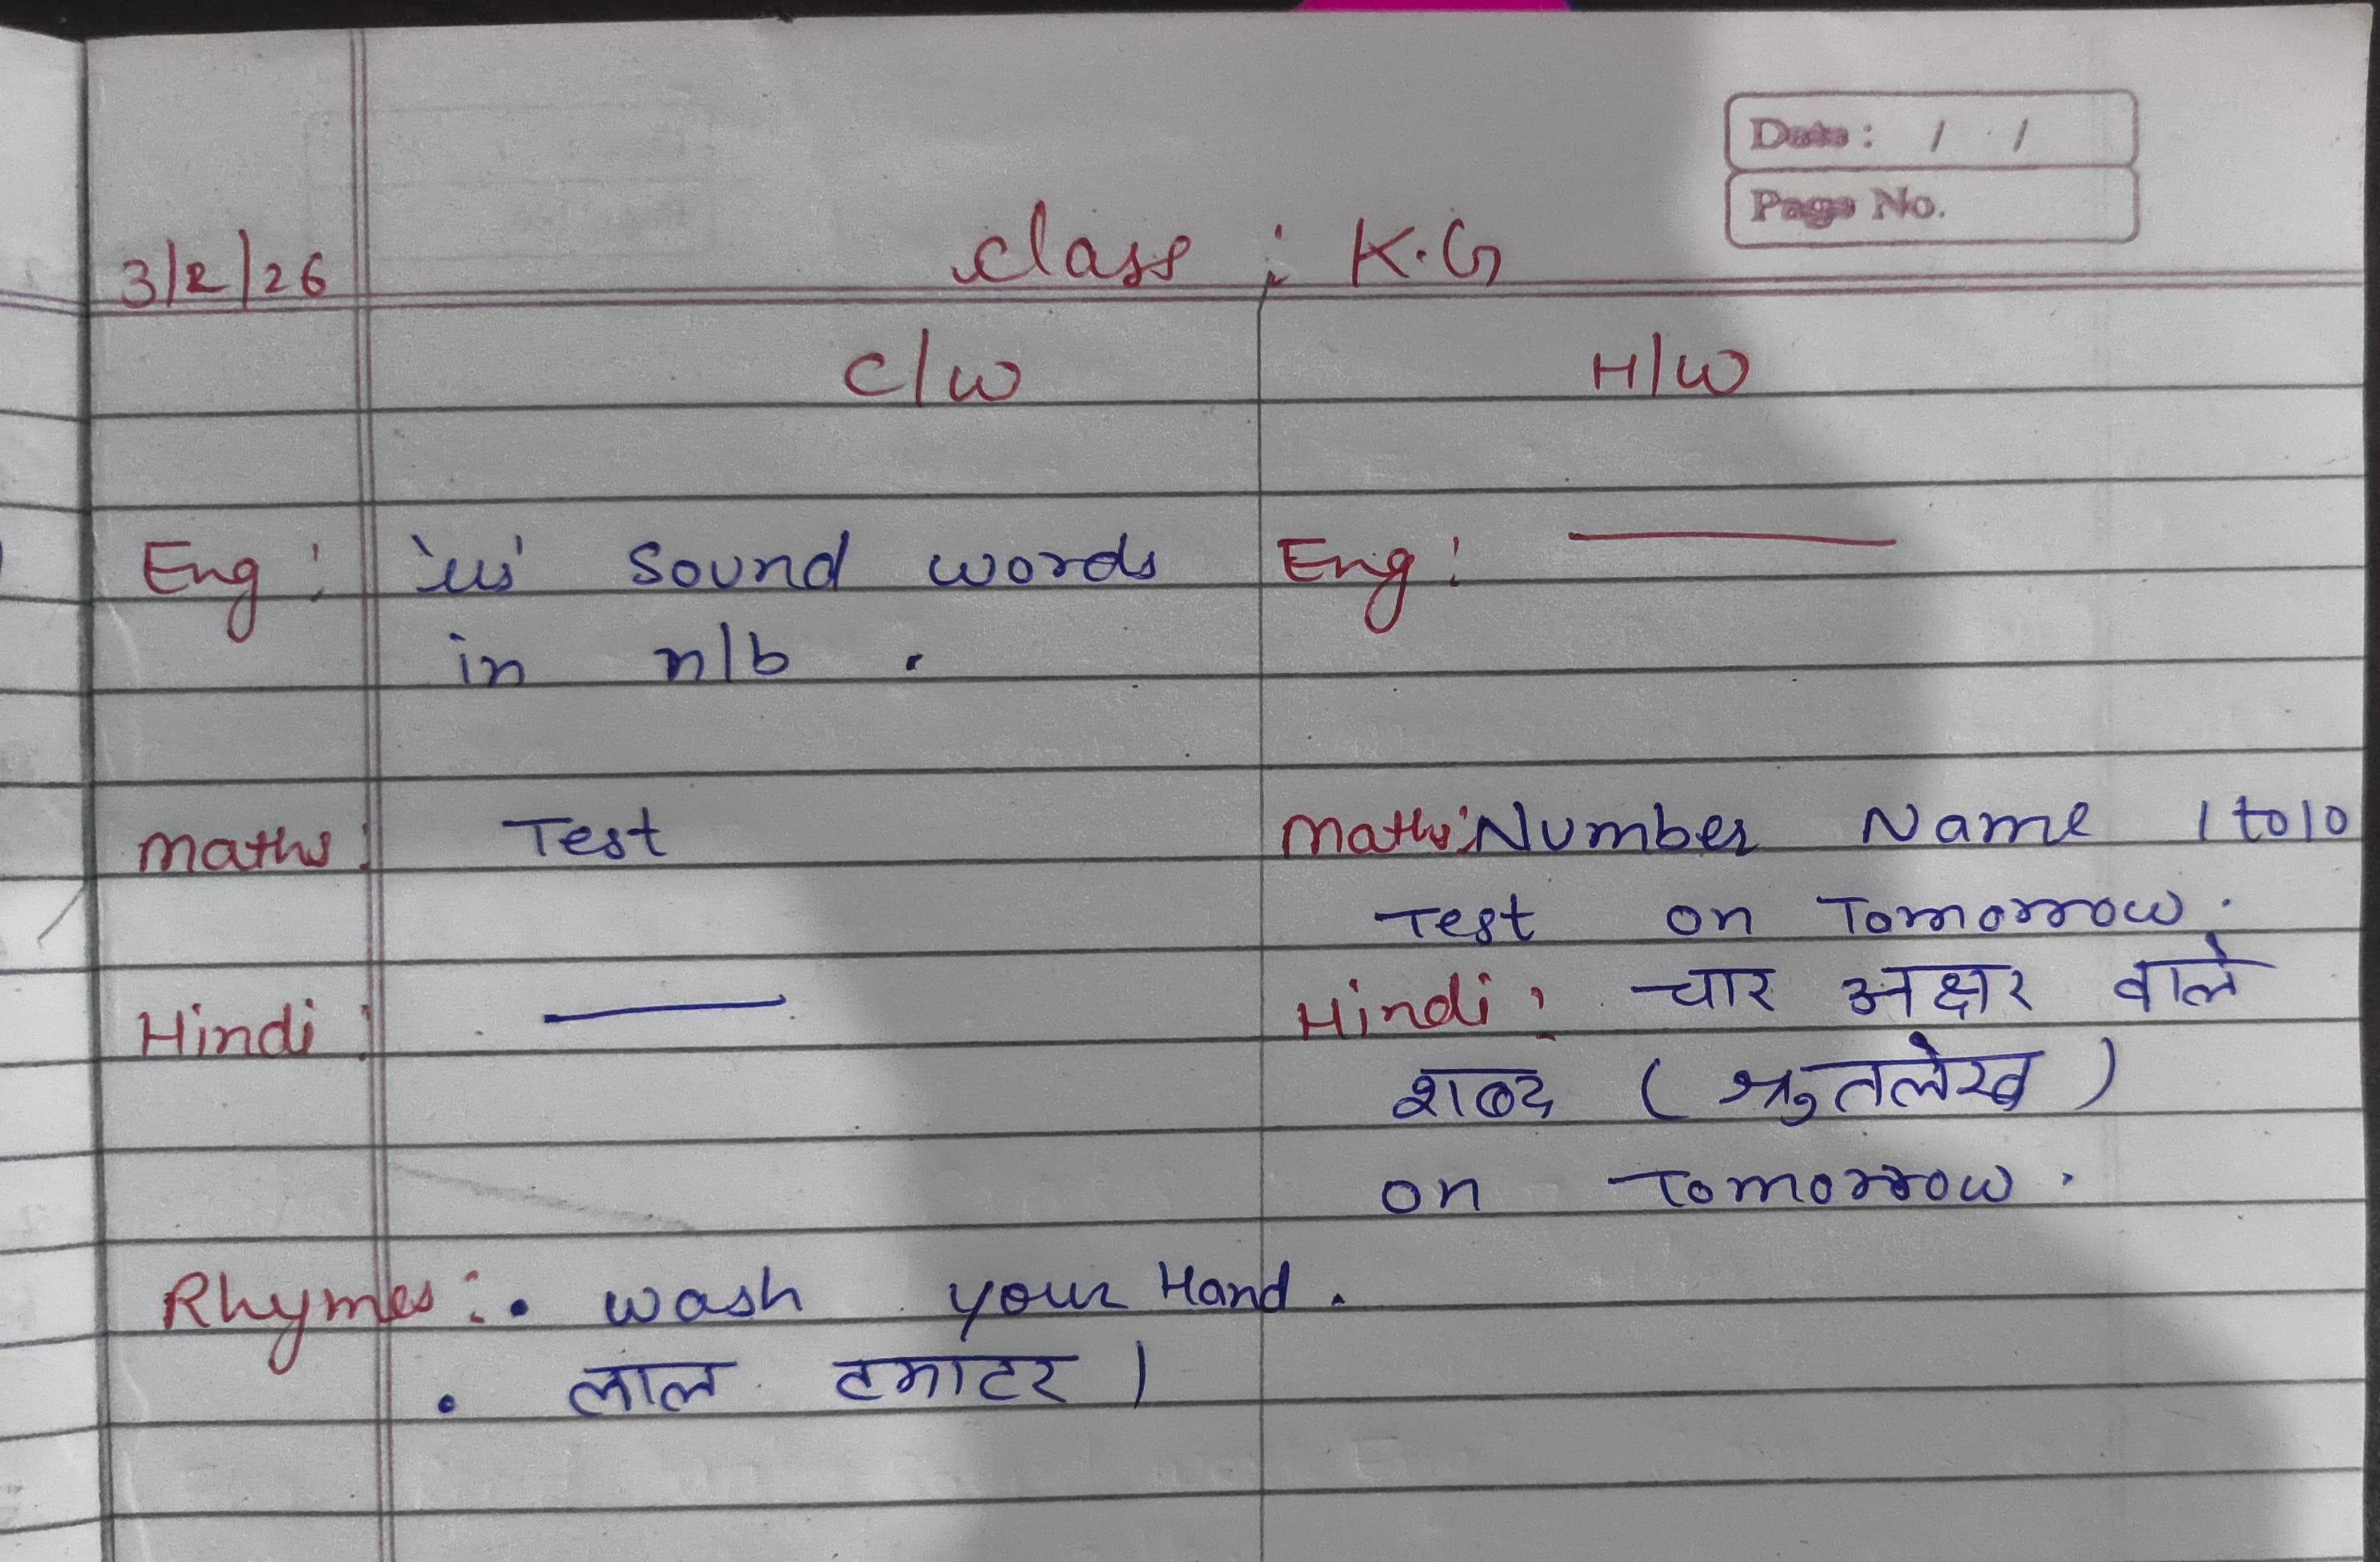 Date: / /
Page No.
3/2/26 Class : K.G
C/W H/W
Eng: 'u' Sound words Eng: ———
in n/b .
Maths: Test Maths: Number Name 1 to 10
Test on Tomorrow.
Hindi: ——— Hindi: चार अक्षर वाले
शब्द ( श्रुतलेख )
on Tomorrow.
Rhymes: • wash your Hand.
• लाल टमाटर ।